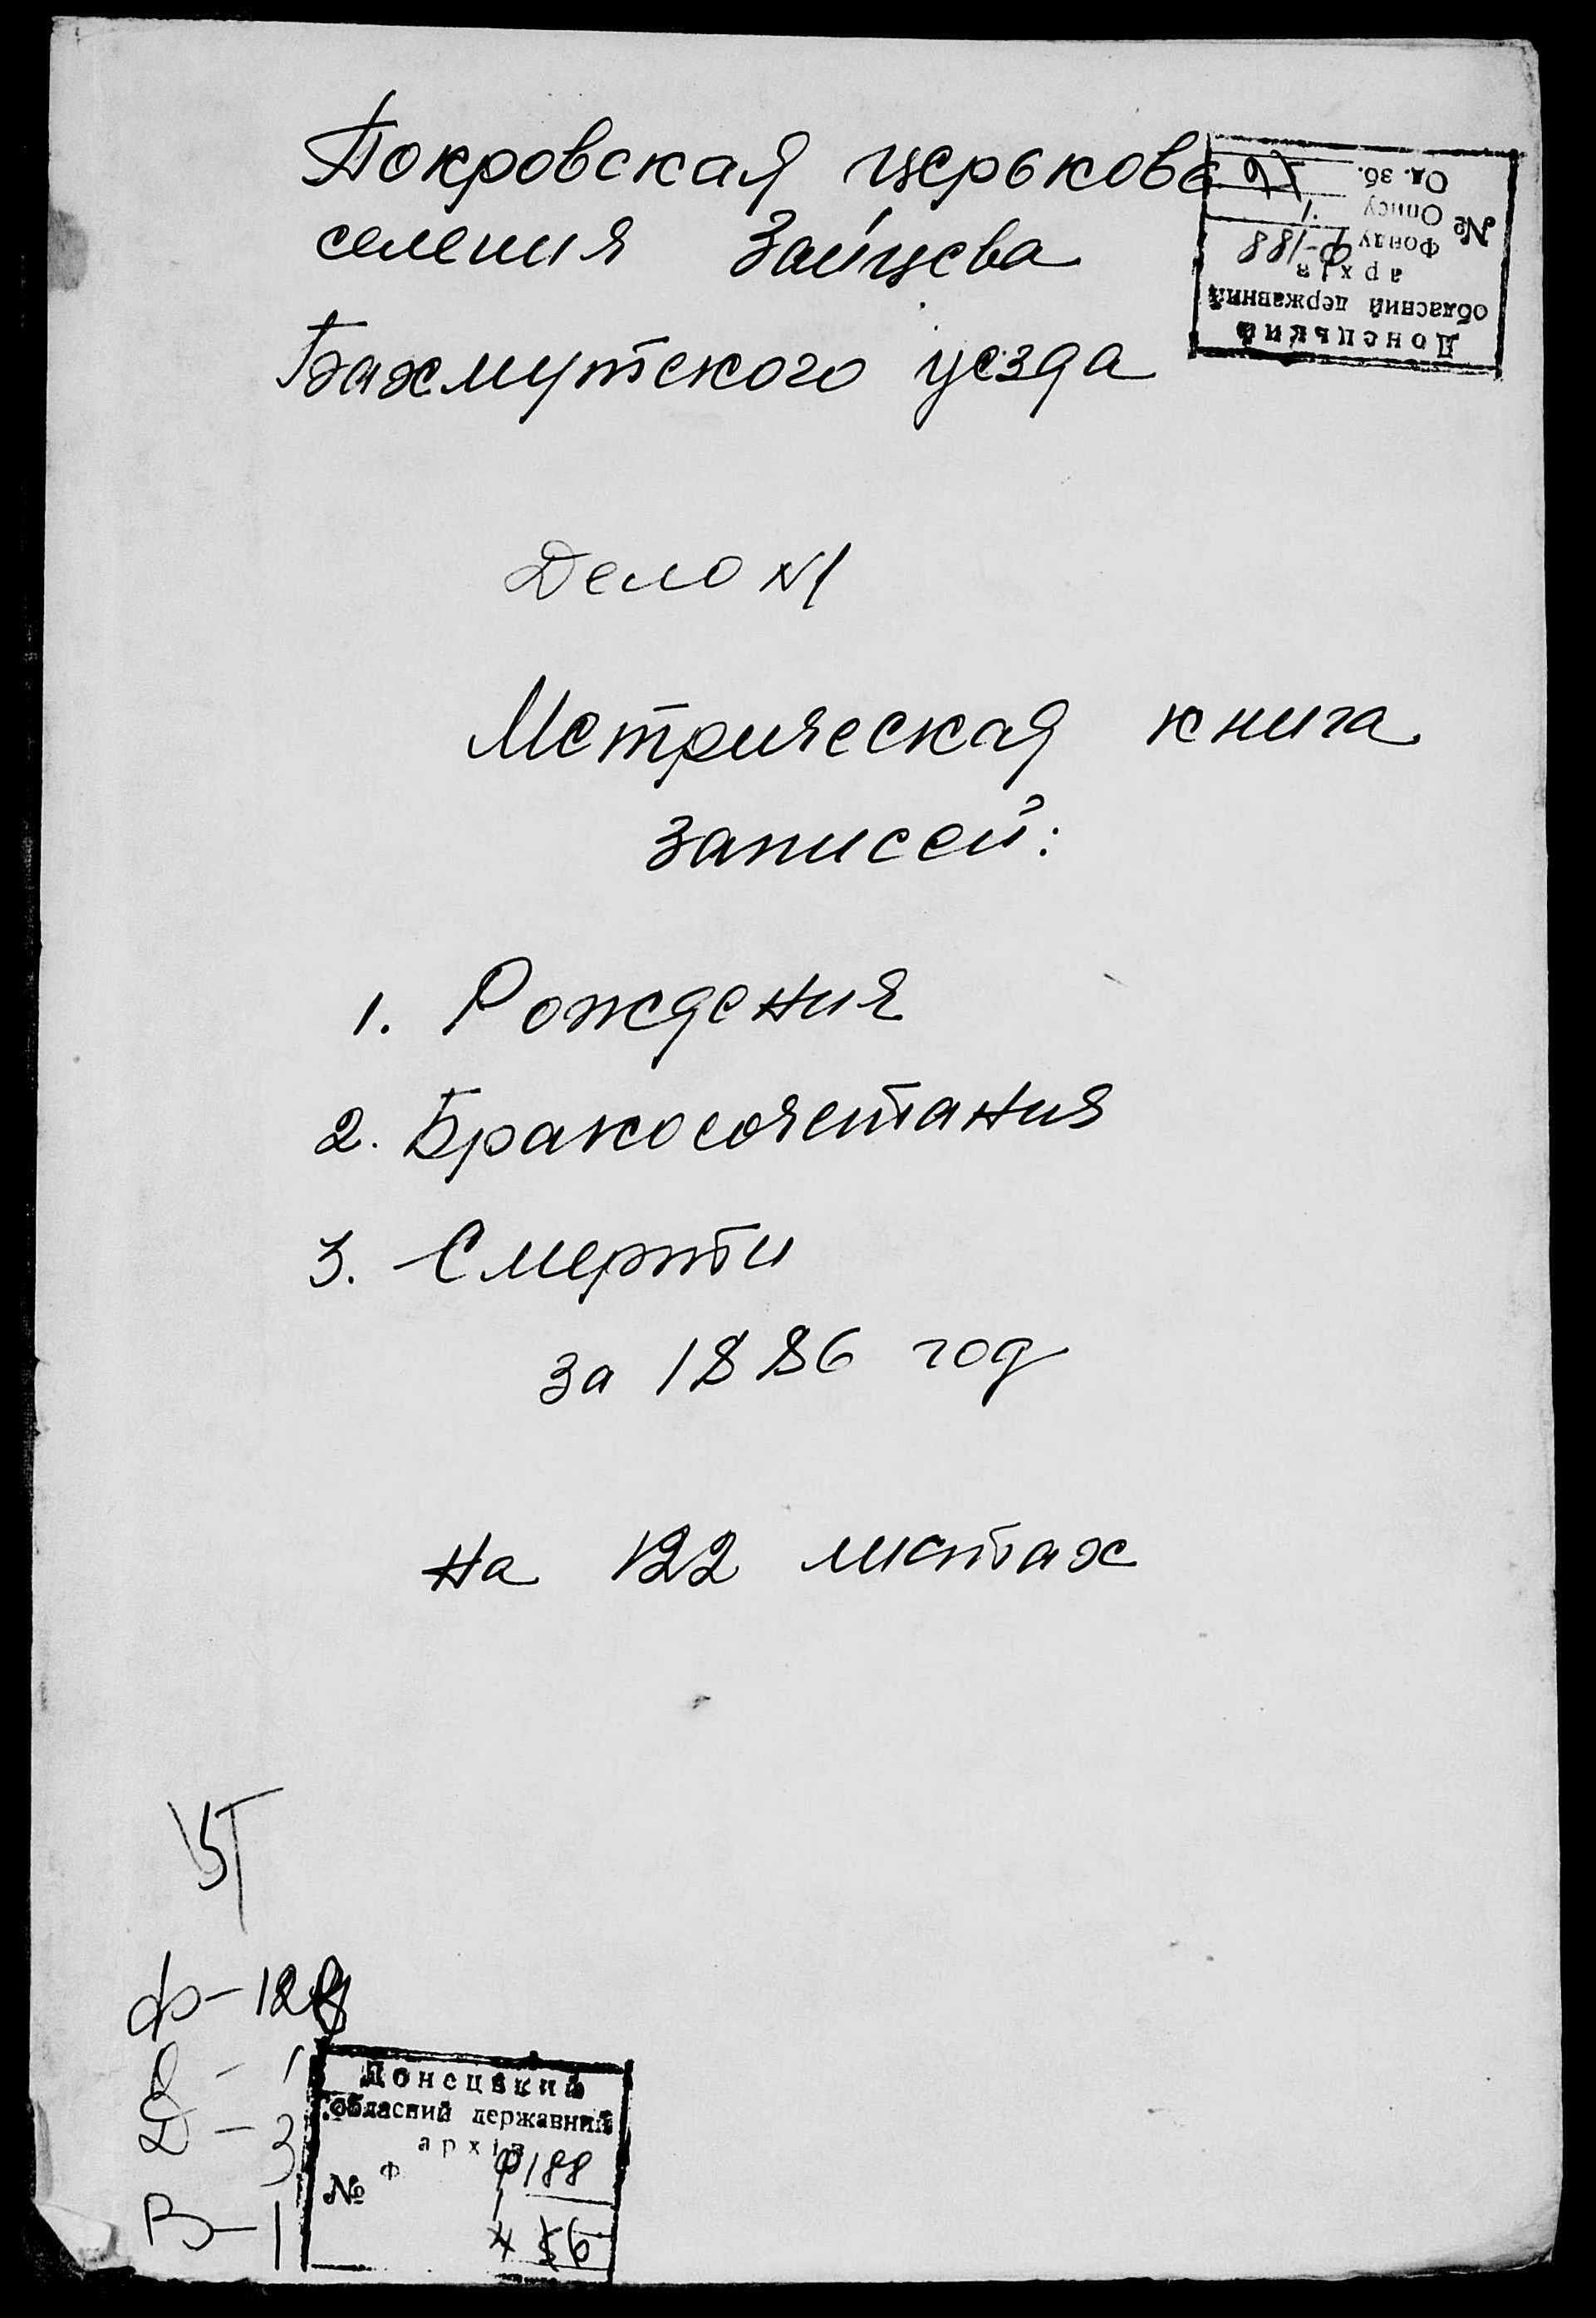 Покровская церьковь
селения Зайцева
Бахмутского уезда
Донецький
обласний державний
архів
Фонду Ф-188
№ Опису 1
Од. зб.
Дело №1
Метрическая книга
записей:
1. Рождения
2. Бракосочетания
3. Смерти
за 1886 год
на 122 листах
В-1
Донецький
обласний державний
архів
№ Ф Ф188